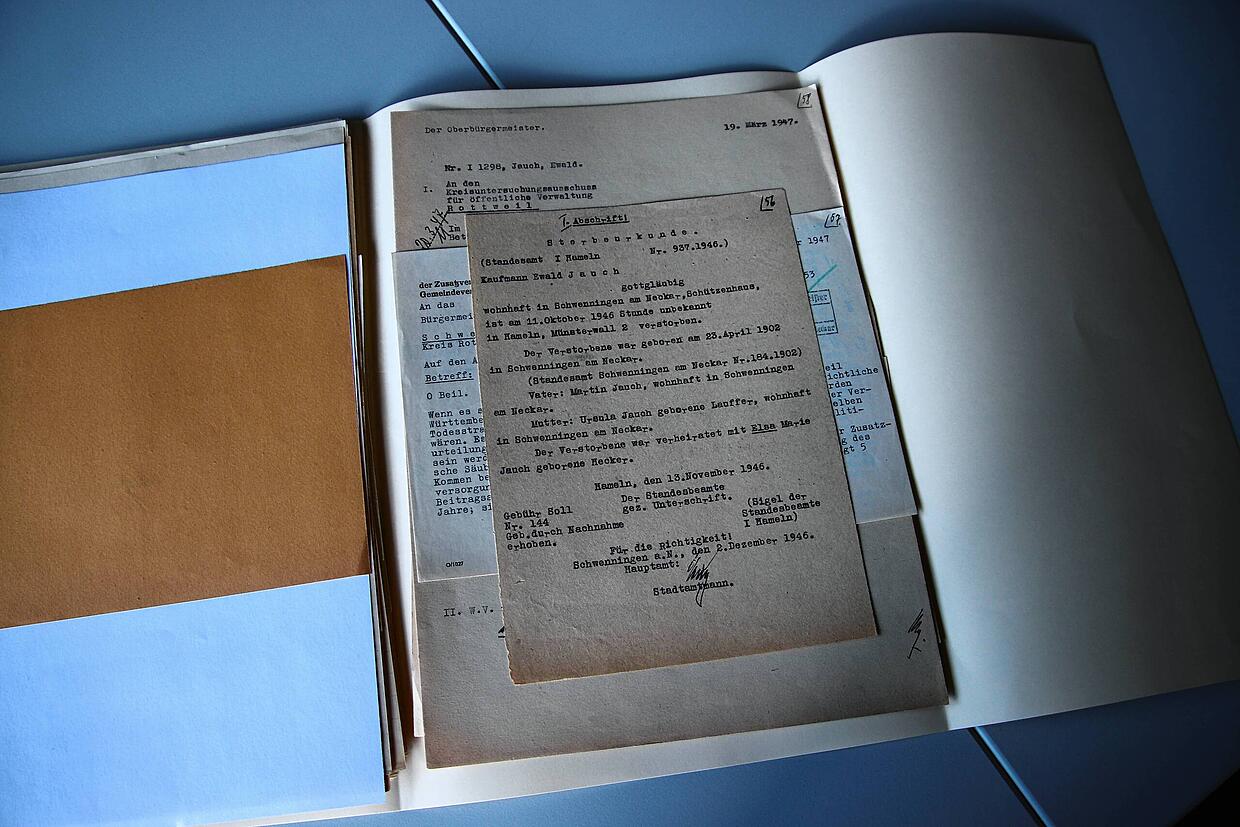 58
Der Oberbürgermeister.
19. März 1947.
Nr. I 1298, Jauch, Ewald.
I. An den
Kreisuntersuchungsausschuss
für öffentliche Verwaltung
R o t t w e i l
Im
Bet
56
I. Abschrift!
S t e r b e u r k u n d e .
(Standesamt I Hameln Nr. 937.1946.)
Kaufmann Ewald J a u c h
gottgläubig
wohnhaft in Schwenningen am Neckar, Schützenhaus,
ist am 11.Oktober 1946 Stunde unbekannt
in Hameln, Münsterwall 2 verstorben.
Der Verstorbene war geboren am 23.April 1902
in Schwenningen am Neckar.
(Standesamt Schwenningen am Neckar Nr.184.1902)
Vater: Martin Jauch, wohnhaft in Schwenningen
am Neckar.
Mutter: Ursula Jauch geborene Lauffer, wohnhaft
in Schwenningen am Neckar.
Der Verstorbene war verheiratet mit Elsa Marie
Jauch geborene Hecker.
Hameln, den 13.November 1946.
Der Standesbeamte
gez. Unterschrift.
(Sigel der
Standesbeamte
I Hameln)
Gebühr Soll
Nr. 144
Geb.durch Nachnahme
erhoben.
Für die Richtigkeit!
Schwenningen a.N., den 2.Dezember 1946.
Hauptamt:
Stadtamtmann.
57
r 1947
53
der Zusatzver
Gemeindever
An das
Bürgermei
S c h w e
Kreis Rot
Auf den A
Betreff:
0 Beil.
Wenn es s
Württembe
Todesstra
wären. Es
urteilung
sein werd
sche Säub
Kommen be
versorgun
Beitragsz
Jahre; si
eil
ichtliche
rden
er Ver-
elben
liti-
r Zusatz-
g des
gt 5
O/1027
II. W.V.